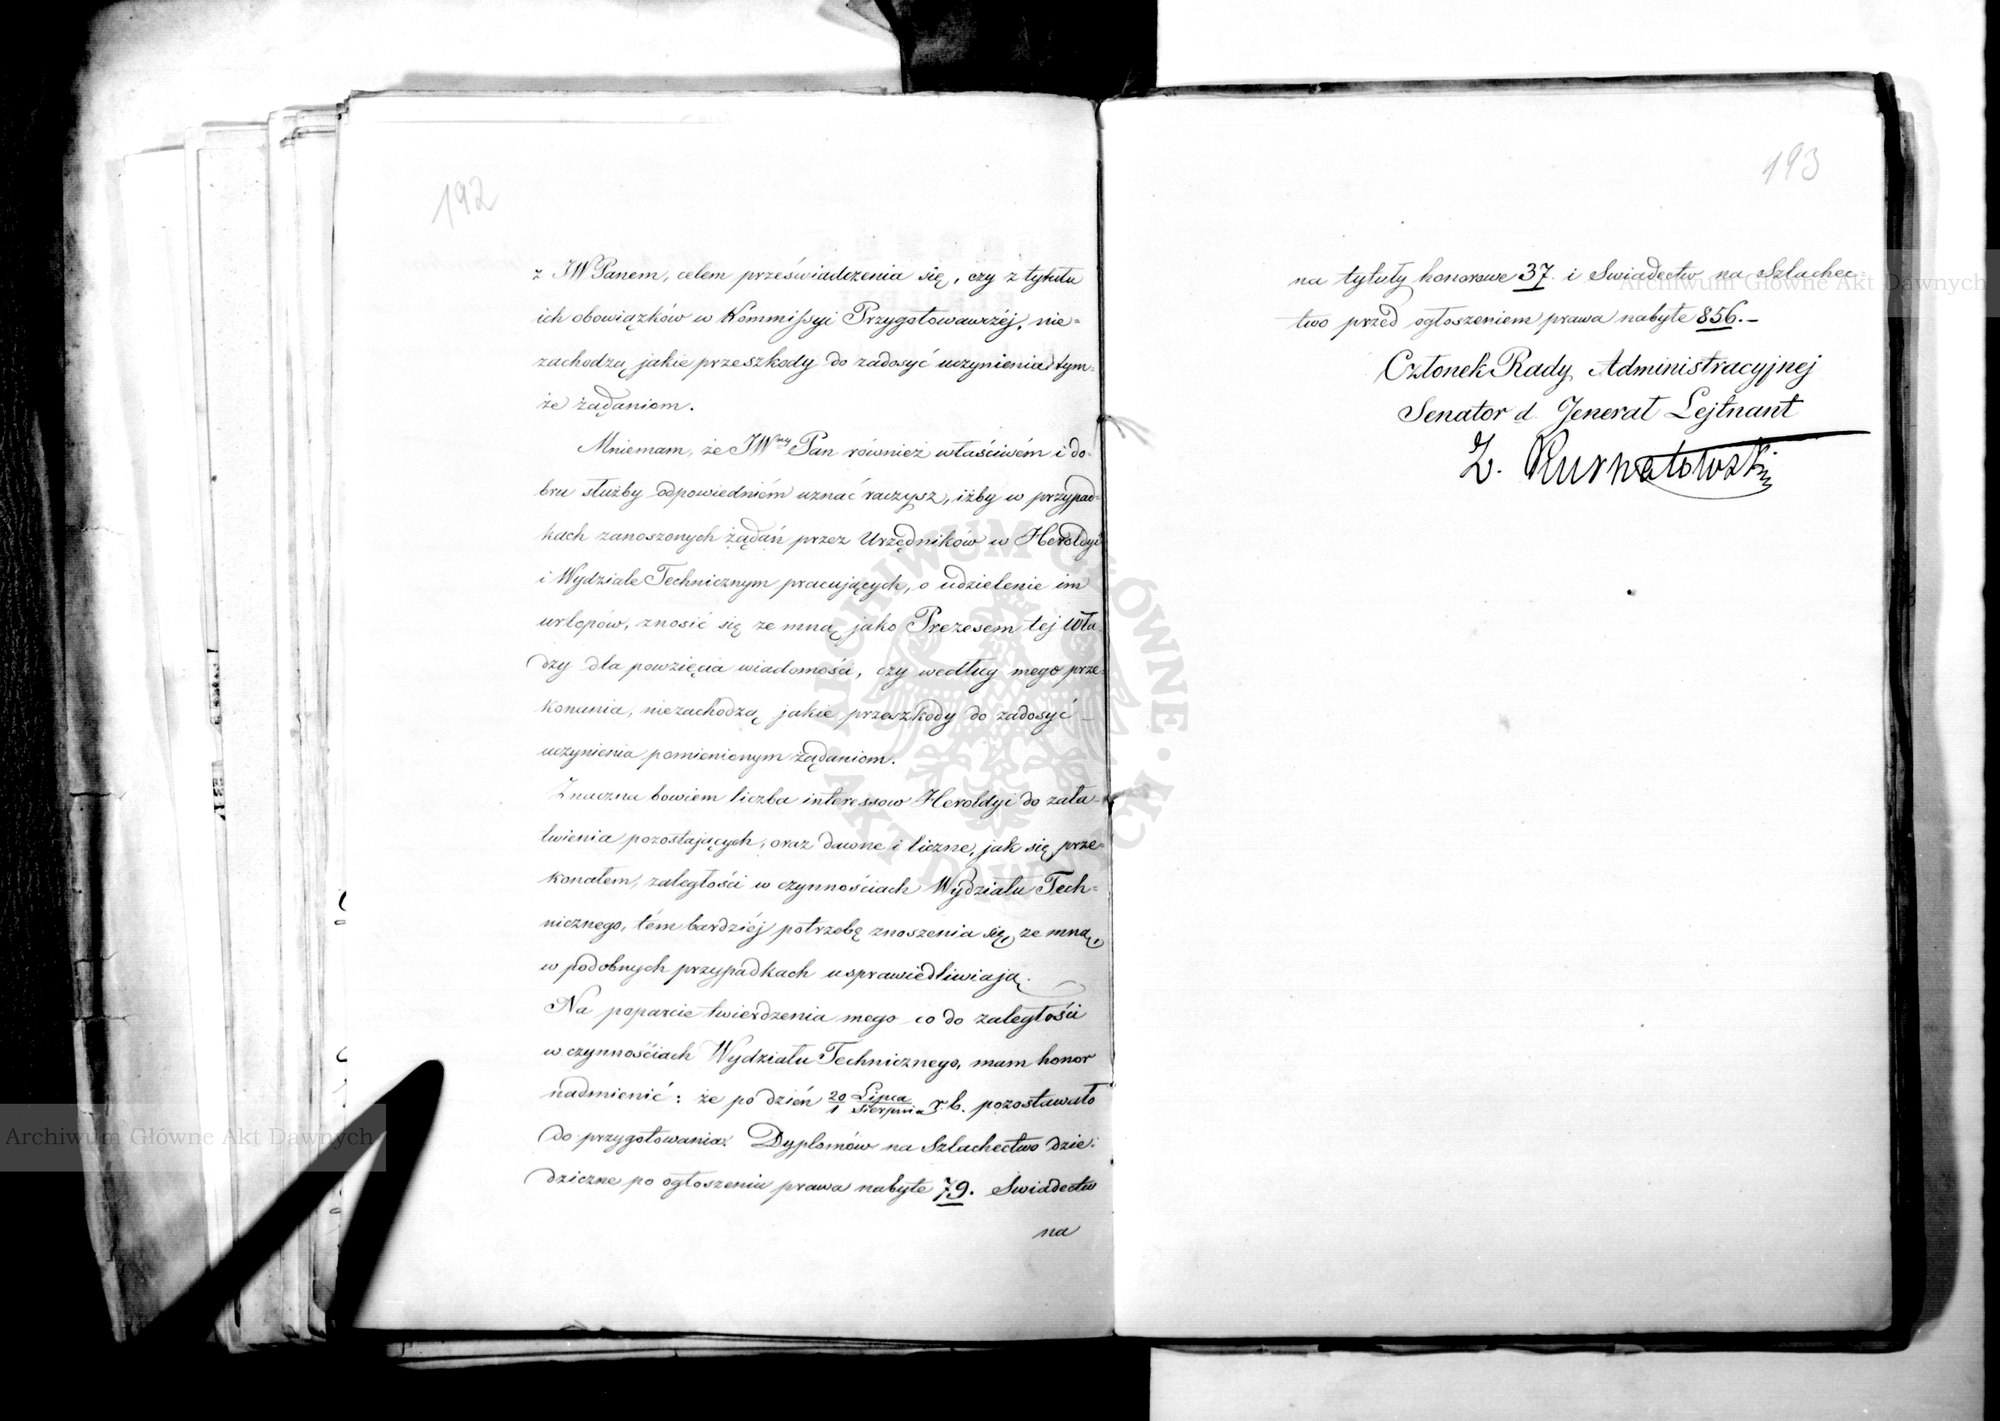 192
z JWPanem, celem przeświadczenia się, czy z tytułu
ich obowiązków w Kommissyi Przygotowawczéj, nie=
zachodzą jakie przeszkody do zadosyć uczynienia tym=
że żądaniom.
Mniemam, że JWny Pan również właściwém i do-
bru służby odpowiedniém uznać raczysz, iżby w przypad=
kach zanoszonych żądań przez Urzędników w Heroldyi
i Wydziale Technicznym pracujących, o udzielenie im
urlopów, znosić się ze mną jako Prezesem tej Wła-
dzy dla powzięcia wiadomości, czy według mego prze-
konania, niezachodzą jakie przeszkody do zadosyć –
uczynienia pomienionym żądaniom.
Znaczna bowiem liczba interessow Heroldyi do zała-
twienia pozostających, oraz dawne i liczne, jak się prze-
konałem, zaległości w czynnościach Wydziału Tech=
nicznego, tém bardziéj potrzebę znoszenia się, ze mną,
w podobnych przypadkach usprawiedliwiają.
Na poparcie twierdzenia mego co do zaległości
w czynnościach Wydziału Technicznego, mam honor
nadmienić: że po dzień 20 Lipca / 1 Sierpnia r. b. pozostawało
do przygotowania: Dyplomów na Szlachectwo dzie-
dziczne po ogłoszeniu prawa nabyte 79. Swiadectw
na
193
na tytuły honorowe 37. i Swiadectw na Szlachec=
two przed ogłoszeniem prawa nabyte 856. –
Członek Rady Administracyjnej
Senator d. Jenerał Lejtnant
Z. Kurnatowski
Archiwum Główne Akt Dawnych
Archiwum Główne Akt Dawnych
ARCHIWUM GŁÓWNE AKT DAWNYCH